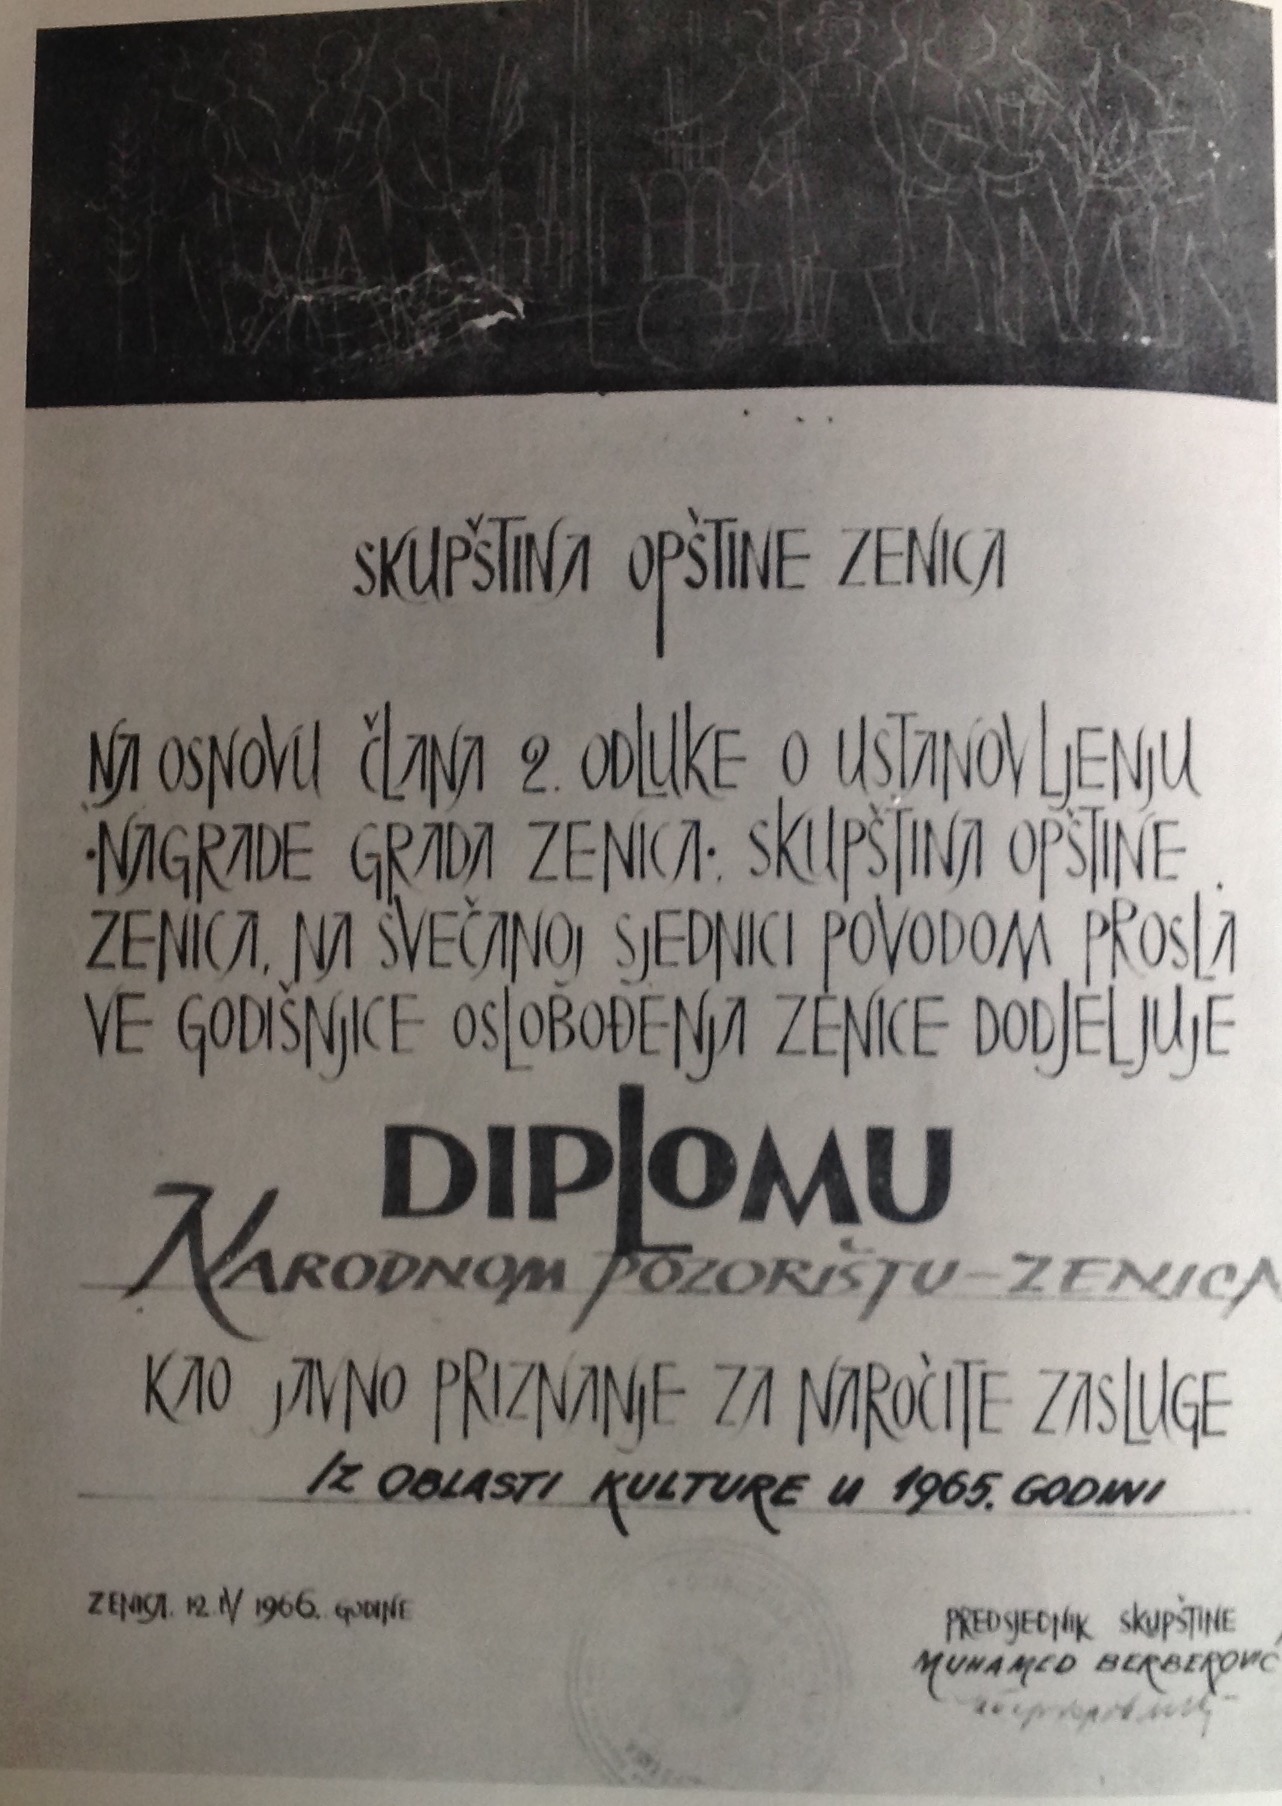 SKUPŠTINA OPŠTINE ZENICA
NA OSNOVU ČLANA 2. ODLUKE O USTANOVLJENJU
·NAGRADE GRADA ZENICA· SKUPŠTINA OPŠTINE
ZENICA, NA SVEČANOJ SJEDNICI POVODOM PROSLA
VE GODIŠNJICE OSLOBOĐENJA ZENICE DODJELJUJE
DIPLOMU
NARODNOM POZORIŠTU-ZENICA
KAO JAVNO PRIZNANJE ZA NAROČITE ZASLUGE
IZ OBLASTI KULTURE U 1965. GODINI
ZENICA. 12. IV 1966. GODINE
PREDSJEDNIK SKUPŠTINE
MUHAMED BERBEROVIĆ